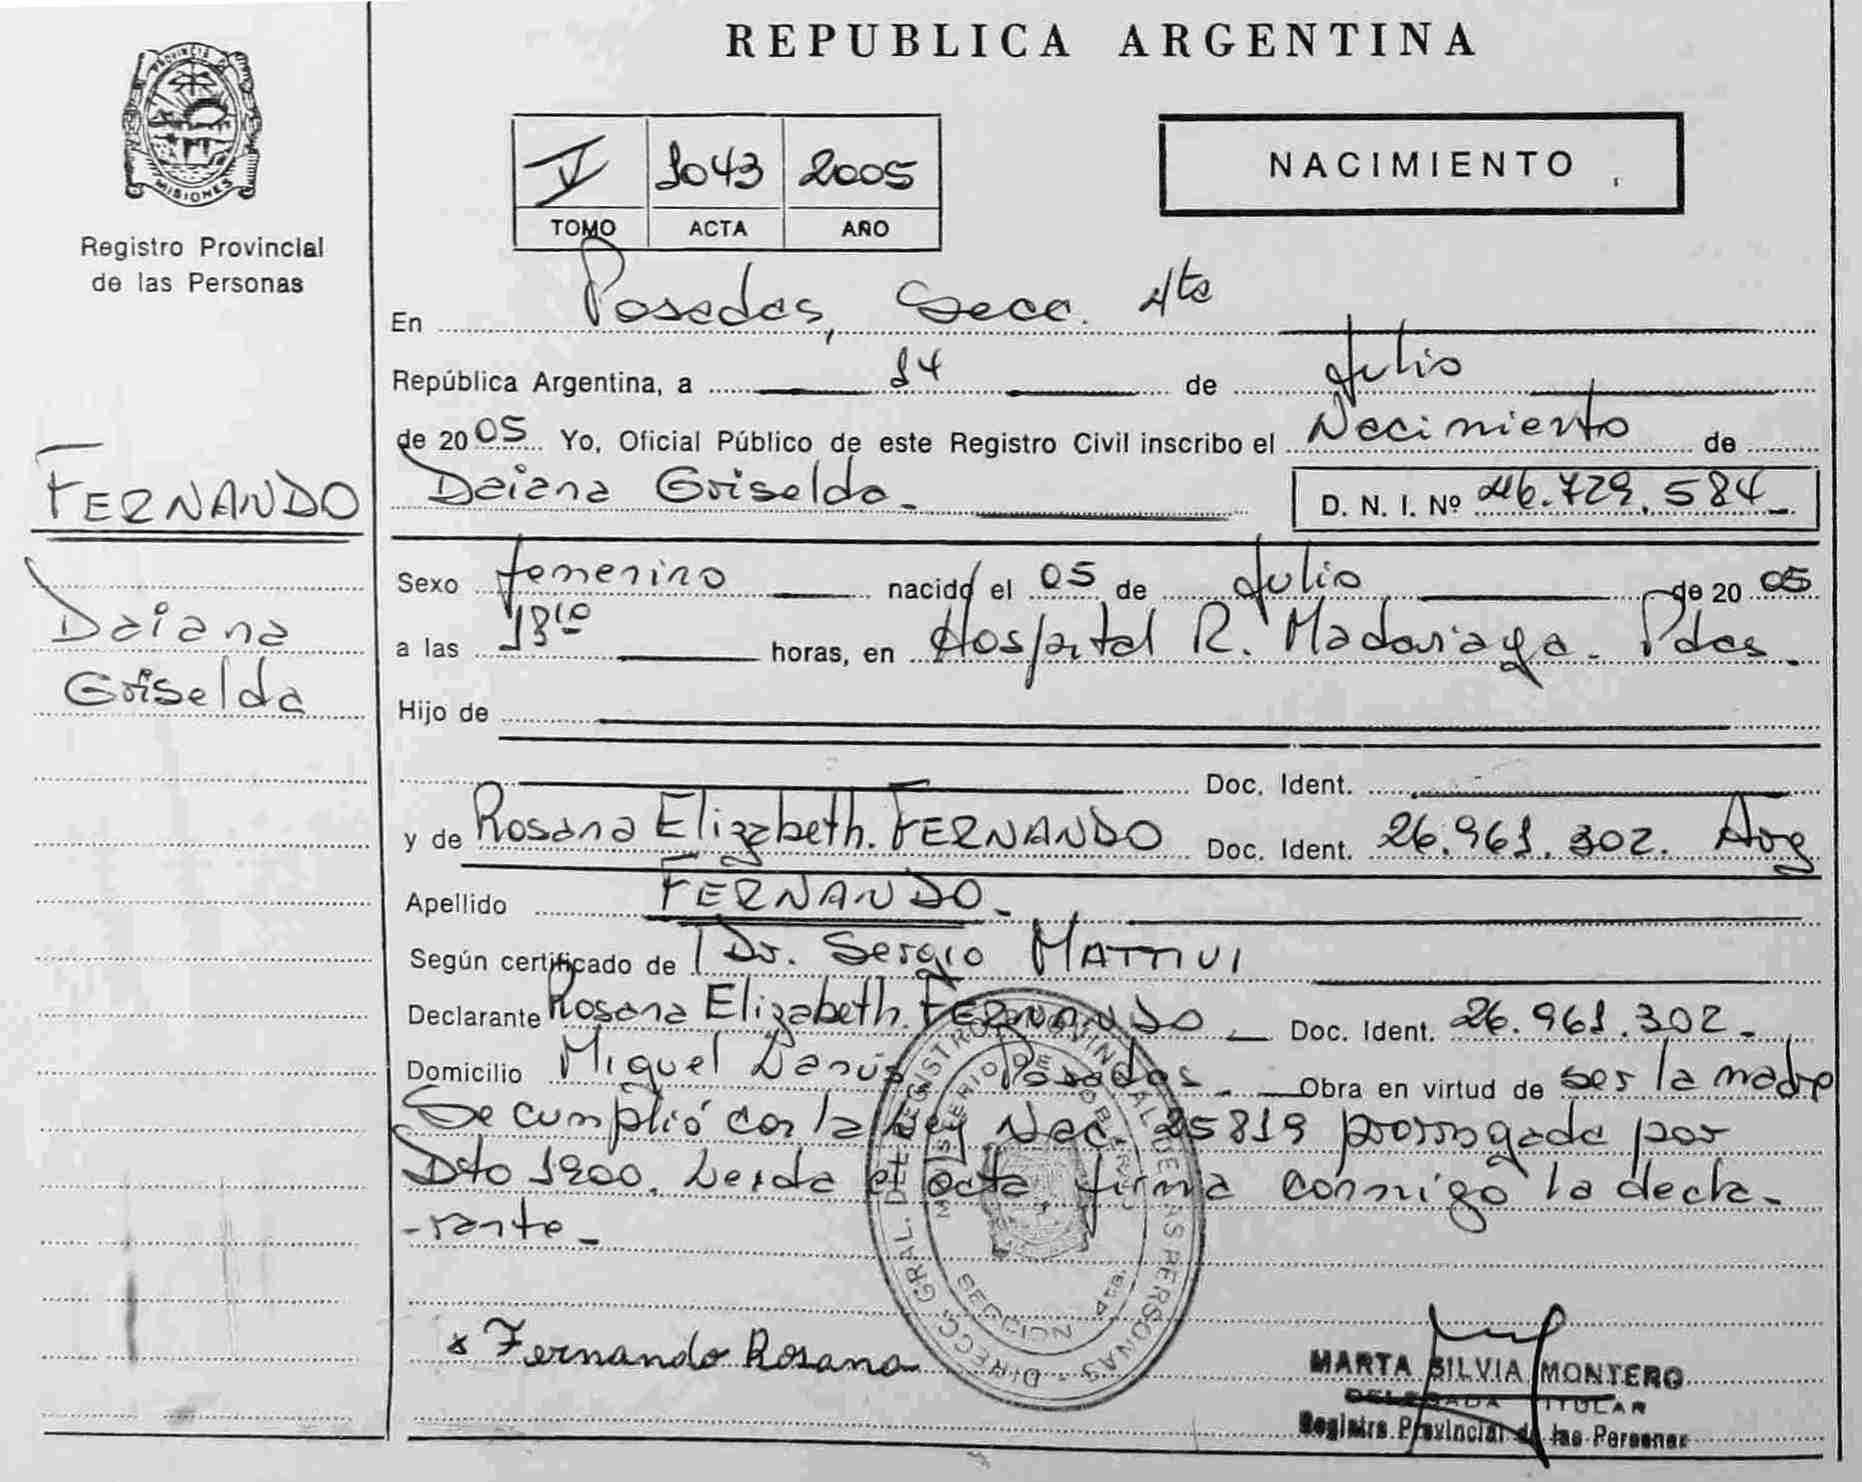 REPUBLICA ARGENTINA
PROVINCIA D
MISIONES
Registro Provincial
de las Personas
V 1043 2005
TOMO ACTA AÑO
NACIMIENTO
En Posadas, Secc. 4ta
República Argentina, a 14 de Julio
de 2005 Yo, Oficial Público de este Registro Civil inscribo el Nacimiento de
Daiana Griselda D. N. I. Nº 46.729.584
FERNANDO
Daiana
Griselda
Sexo femenino nacido el 05 de Julio de 2005
a las 13 10 horas, en Hospital R. Madariaga. Pdas.
Hijo de
Doc. Ident.
y de Rosana Elizabeth. FERNANDO Doc. Ident. 26.961.302. Arg
Apellido FERNANDO
Según certificado de Dr. Sergio MATTIVI
Declarante Rosana Elizabeth. FERNANDO Doc. Ident. 26.961.302
Domicilio Miguel Lanús Posadas Obra en virtud de ser la madre
Se cumplió con la Ley Nac. 25819 prorrogada por
Dto 1900. Leida el acta firma conmigo la decla-
-rante
DIRECC. GRAL. DEL REGISTRO PROVINCIAL DE LAS PERSONAS
MINISTERIO DE GOBIERNO
x Fernando Rosana
MARTA SILVIA MONTERO
DELEGADA TITULAR
Registro Provincial de las Personas